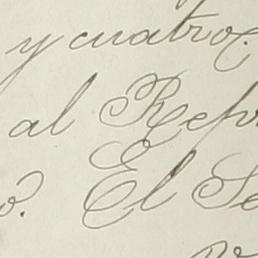 y cuatro.
al Repu
o. El Se